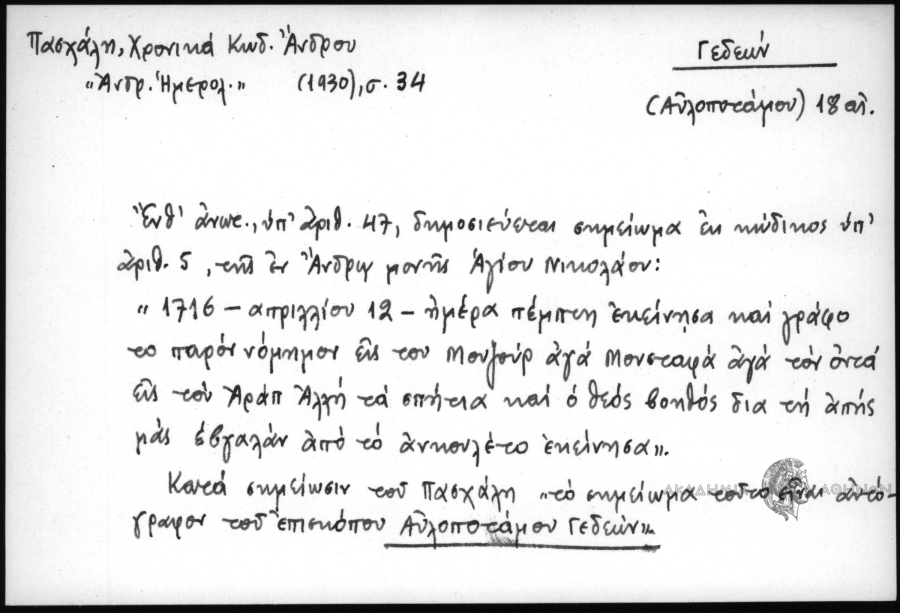 Πασχάλη, Χρονικά Κωδ. Ἄνδρου
"Ἀνδρ. Ἡμερολ." (1930), σ. 34
Γεδεών
(Αὐλοποτάμου) 18 αἰ.
Ἔνθ' ἀνωτ., ὑπ' ἀριθ. 47, δημοσιεύεται σημείωμα ἐκ κώδικος ὑπ'
ἀριθ. 5, τῆς ἐν Ἄνδρῳ μονῆς Ἁγίου Νικολάου:
"1716 – απριλλίου 12 – ἡμέρα πέμπτη ἐκείνησα καί γράφο
το παρόν νόμημον εἰς του Μουζούρ ἀγά Μουσταφά ἀγά τόν ὀντά
εἰς τοῦ Ἀράπ Ἀλλή τά σπήτια καί ὁ θεός βοηθός δια τή ἀπής
μάς ἐβγαλάν ἀπό τό ἀνκουλέτο ἐκείνησα".
Κατά σημείωσιν τοῦ Πασχάλη "τό σημείωμα τοῦτο εἶναι αὐτό-
γραφον τοῦ ἐπισκόπου Αὐλοποτάμου Γεδεών".
ΑΚΑΔΗΜΙΑ ΑΘΗΝΩΝ